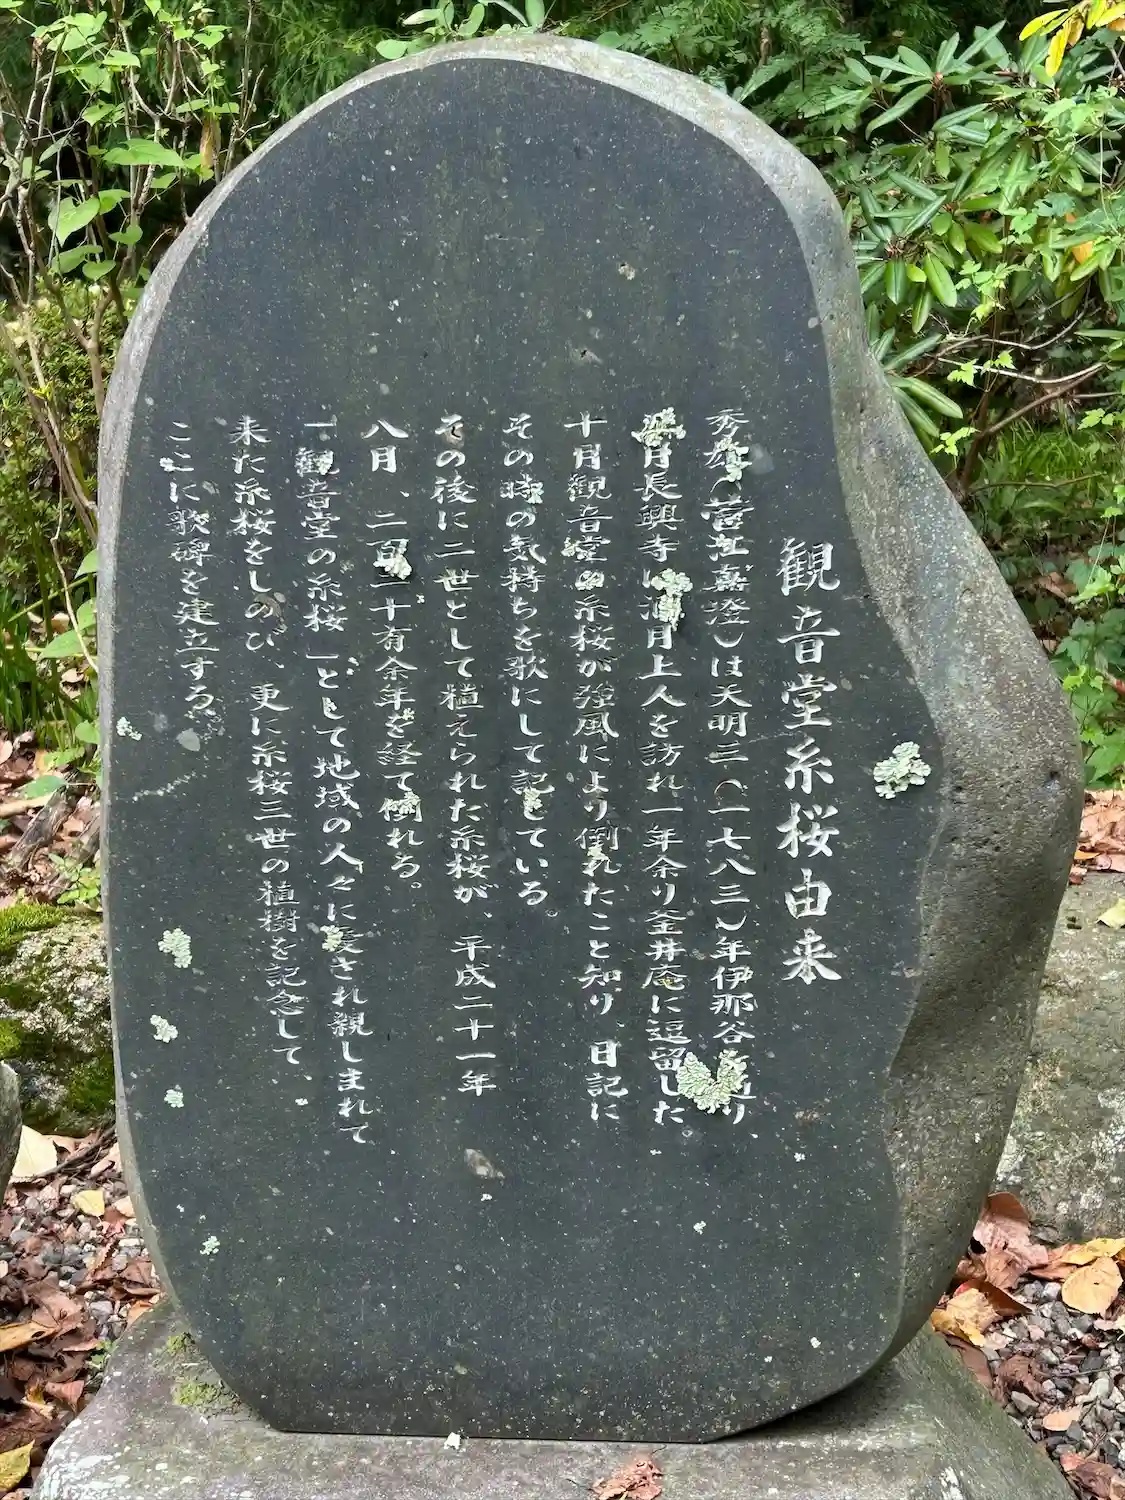 観音堂糸桜由来
秀雄(菅江真澄)は天明三(一七八三)年伊那谷より、
月長興寺に洞月上人を訪れ一年余り釜井庵に逗留した。
十月観音堂の糸桜が強風により倒れたこと知り、日記に
その時の気持ちを歌にして記している。
その後に二世として植えられた糸桜が、平成二十一年
八月、二百二十有余年を経て倒れる。
「観音堂の糸桜」として地域の人々に愛され親しまれて
来た糸桜をしのび、更に糸桜三世の植樹を記念して、
ここに歌碑を建立する。